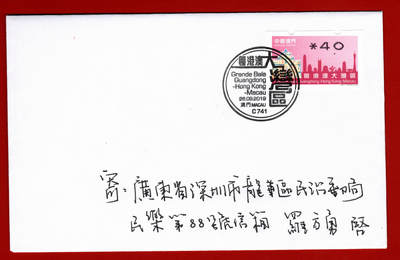 粵港澳大灣區
Grande Baía
Guangdong
-Hong Kong
-Macau
26.09.2019
澳門 MACAU
C741
中國澳門
*40
粵港澳大灣區
Guangdong Hong Kong Macau
寄:廣東省深圳市龍華區民治郵局
民樂第88號信箱 羅方勇 啓